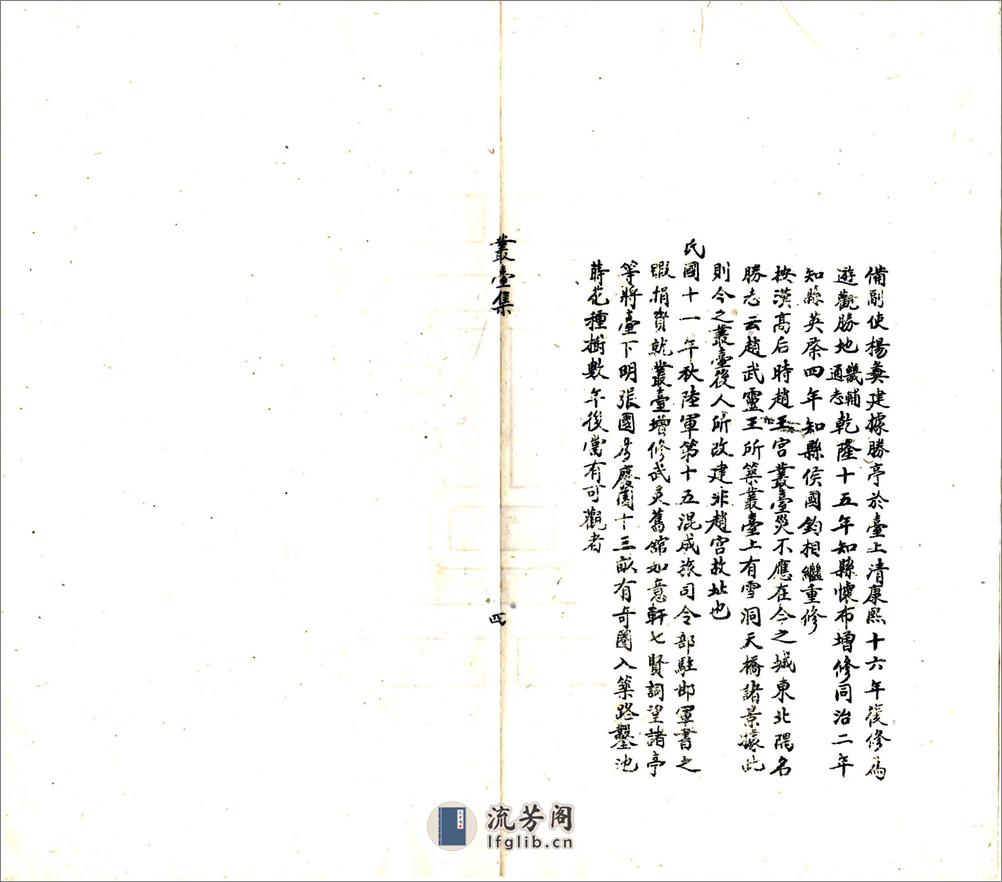 備副使楊彝建據勝亭於臺上清康熙十六年復修為
遊觀勝地畿輔通志乾隆十五年知縣懷布增修同治二年
知縣英棨四年知縣侯國鈞相繼重修
按漢高后時趙王宮叢臺災不應在今之城東北隅名
勝志云趙武靈王所築叢臺上有雪洞天橋諸景據此
則今之叢臺後人所改建非趙宮故址也
民國十一年秋陸軍第十五混成旅司令部駐邯軍書之
暇捐貲就叢臺增修武灵舊館如意軒七賢詞望諸亭
等將臺下明張國彥廢園十三畝有奇圈入築路鑿池
蒔花種樹數年後當有可觀者
叢臺集
四
流芳阁
lfglib.cn